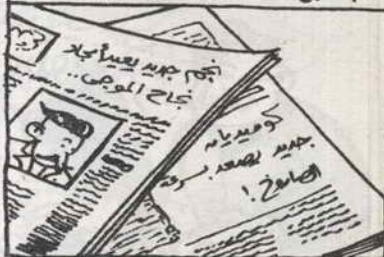 نجم جديد يعيد أمجاد
نجاح الموجى..
كوميديان
جديد يصعد بسرعة
الصاروخ !